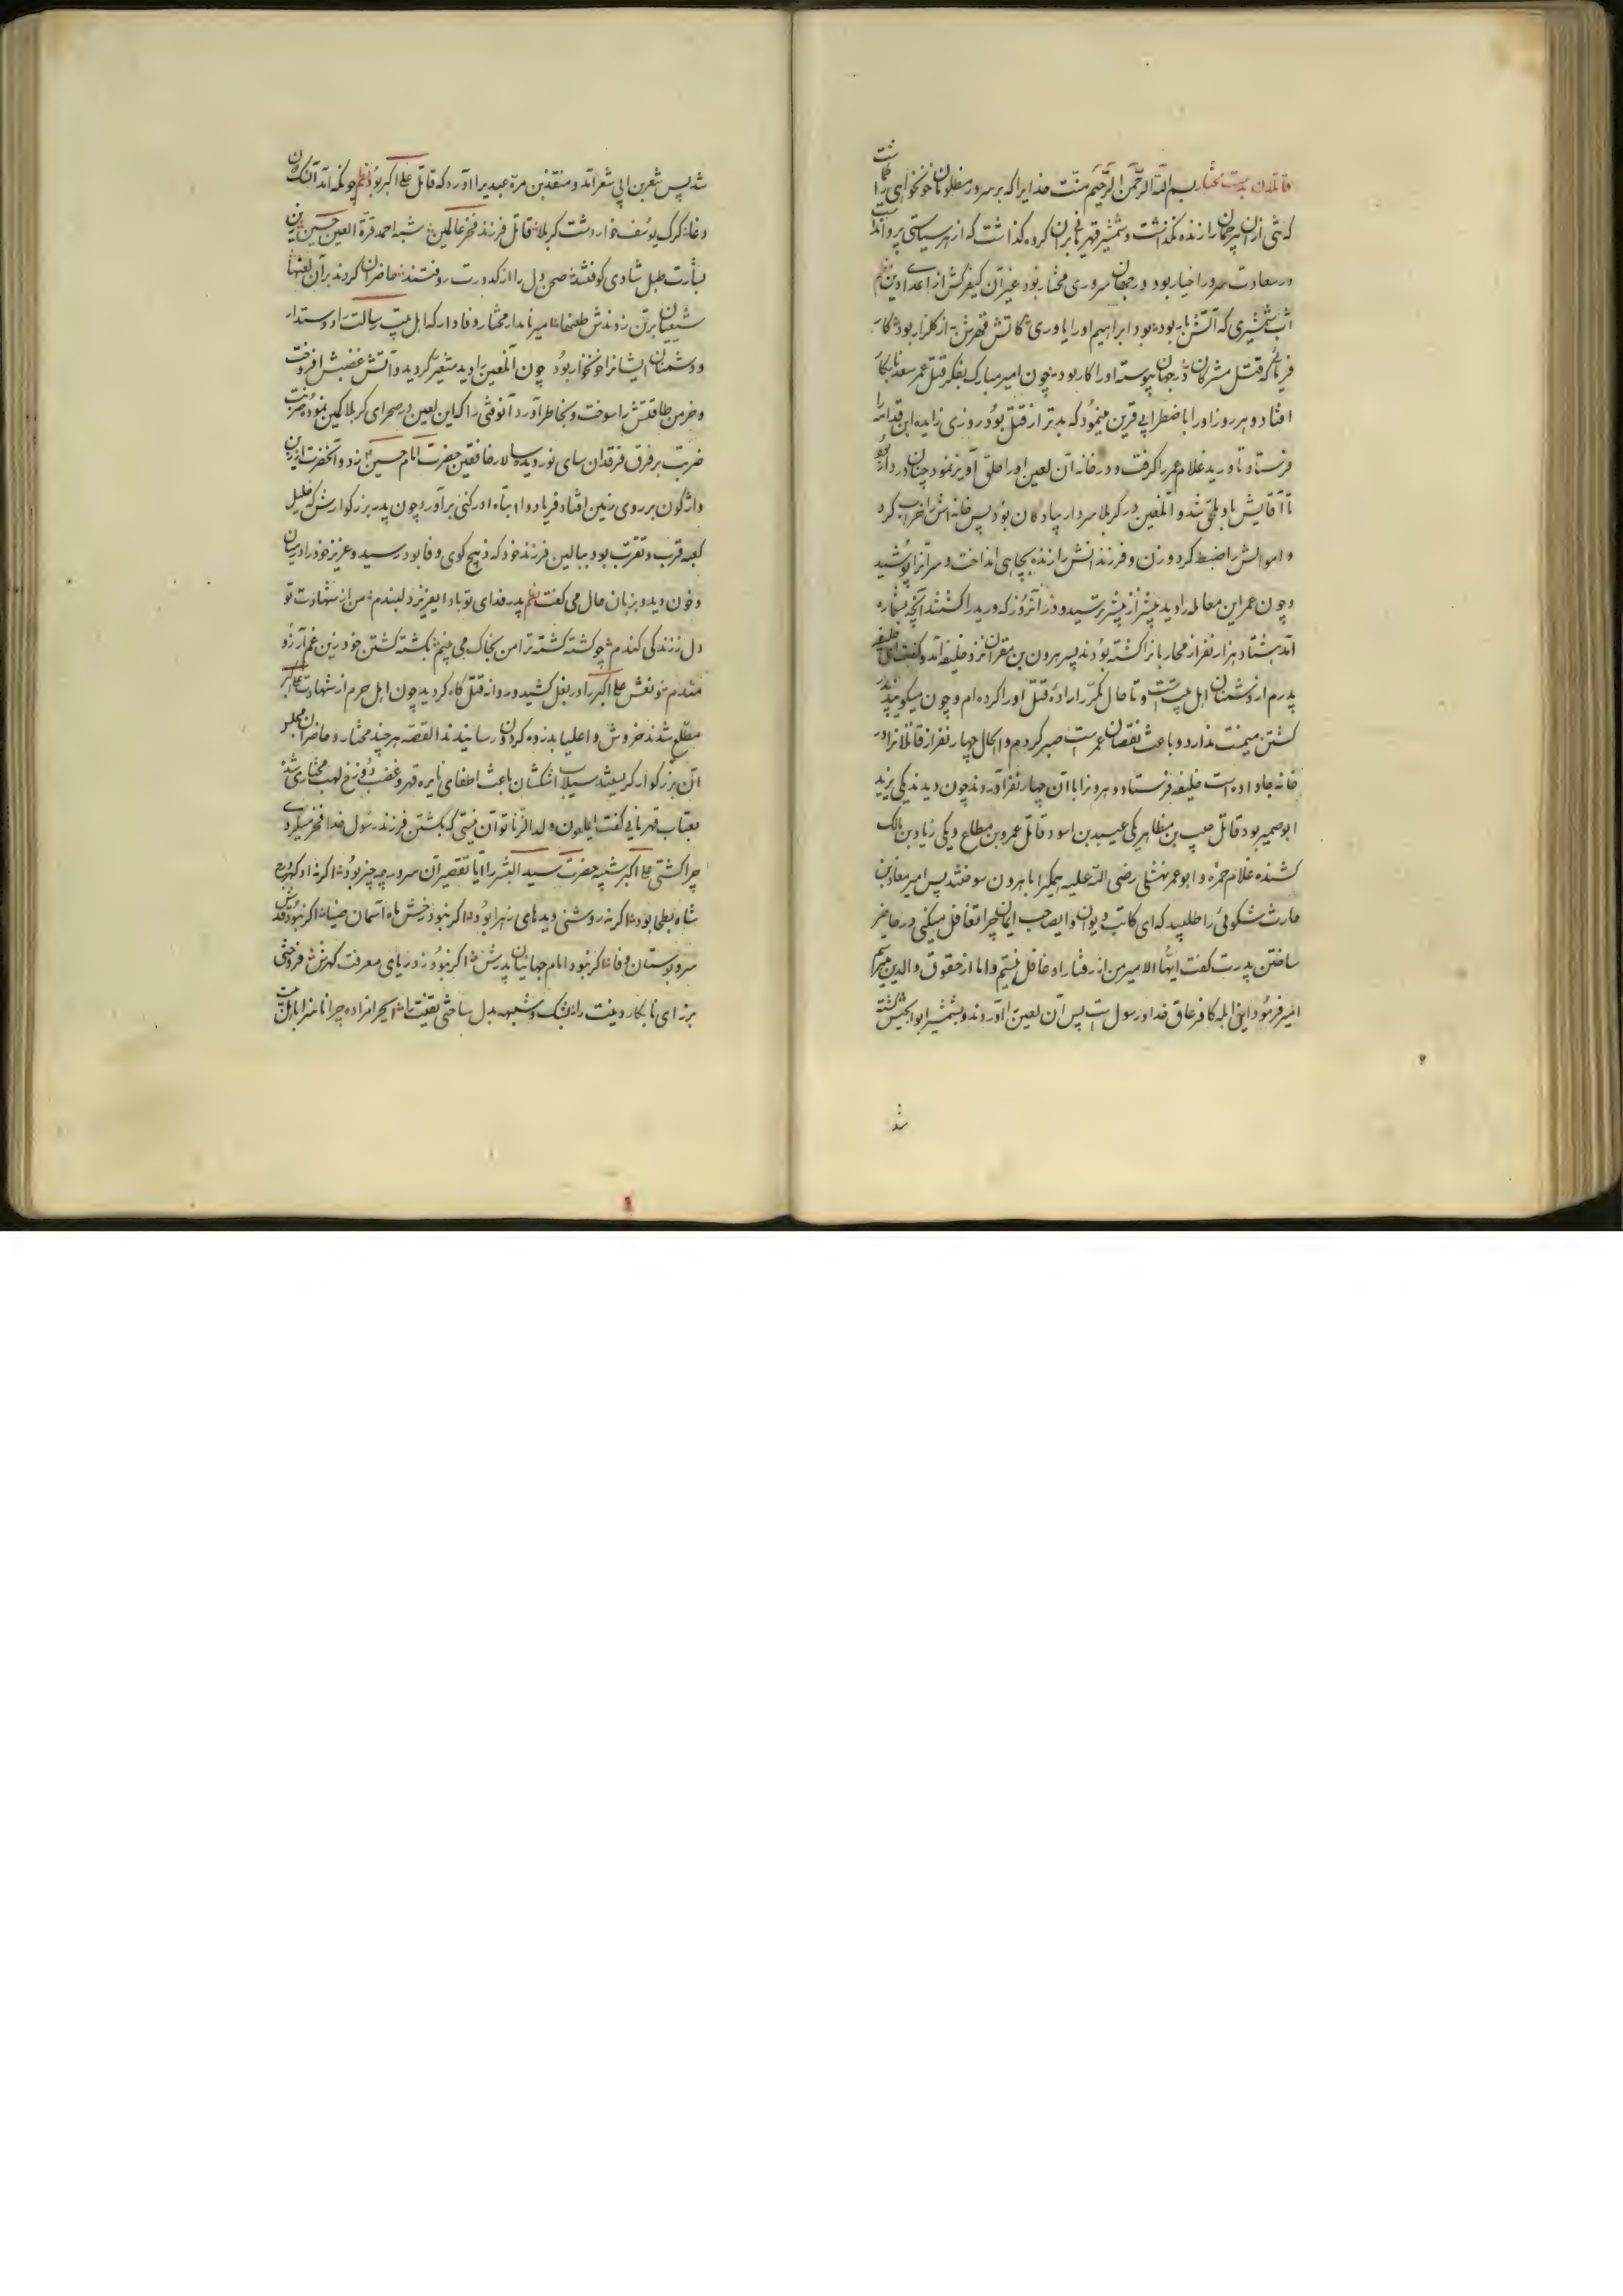 قاتلان بدست مختار بسم الله الرحمن الرحیم منت خدایرا که بر سرور مظلومان خونخواهی را
که شئ ازان بیرحمان را زنده نگذاشت و شمشیر قهرمانی بران کروه گذاشت که از هر سیاستی پروا
در سعادت سرور اخیار بود در جهان سروری مختار بود غیر آن کیفر کش از اعدا دین
آتش بار بود بود ابراهیم او را یاوری از کلزار بود
که قتل مشرکان در جهان پیوسته او را کار بود چون امیر مبارک بفکر قتل عمر سعد نابکار
افتاد و هر روز او را باضطرابی قرین مینمود که بدتر از قتل بود روزی زایده ابن قدامه را
فرستاد تا ورید غلام عمر را کرفت و در خانه آن لعین او را حلق آویز نمود
تا آقایش باو ملحق شد و آنلعین در کربلا سردار پیادکان بود پس خانه اش را خراب کرد
و اموالش را ضبط کرد و زن و فرزندانش را زنده بچاهی انداخت و سر آنرا پوشید
و چون عمر این معامله را دید بیشتر از پیشتر ترسید و در آنروز که ورید را کشتند آنچه بشماره
آمد هشتاد هزار نفر از محاربانرا کشته بودند پسر هرون بن مقران نزد خلیفه آمد و کفت ای خلیفه
پدرم از دشمنان اهل بیت است و تا حال مکرر اراده قتل او را کرده ام و چون میکویند پدر
کشتن میمنت ندارد و باعث نقصان عمر است صبر کردم و الحال چهار نفر از قاتلانرا در
خانه جا داده است خلیفه فرستاد و هرونرا با آن چهار نفر آوردند چون دیدند یکی یزید
ابو صمیر بود قاتل حبیب بن مظاهر یکی عبید بن اسود قاتل عمرو بن مطاع و یکی زیاد بن مالک
کشنده غلام حمزه و ابو عمر نهشلی رضی الله علیه همکیرا با هرون سوختند پس امیر معاذ بن
حارث شکوفی را طلبید که ای کاتب دیوان وایصاحب ایمان چرا تغافل میکنی در حاضر
ساختن پدرت کفت ایها الامیر من از رفتار او غافل نیستم و اما از حقوق والدین میترسم
امیر فرمود این ابله کافر عاق خدا و رسول است پس آن لعین را آوردند و بشمشیر ابو الجیش کشته
شد
شد پس شعر بن ابی شعر آمد و منقذ بن مره عبدیرا آورد که قاتل علی اکبر بود نظم چونکه آمد آن
دغا کرک یوسف خوار دشت کربلا قاتل فرزند فخر عالمین شبه احمد قرة العین حسین
بشارت طبل شادی کوفتند صحن دل را از کدورت روفتند حاضران کردند بر آن لعنها
شیعیان بر تن زدندش طعنها امیر نامدار مختار وفادار که اهل بیت رسالت را دوستدار
و دشمنان ایشانرا خونخوار بود چون آنلعین را دید متغیر کردید و آتش غضبش افروخت
و خرمن طاقتش را سوخت و بخاطر آورد آنوقتی را که این لعین در صحرای کربلا کمین نموده
ضربت بر فرق فرقدان سای نور دیده سالار خافقین حضرت امام حسین زد و آنحضرت از زین
واژکون بر روی زمین افتاد فریاد وا ابتاه ادرکنی برآورد چون پدر بزرکوارش که خلیل
کعبه قرب و تقرب بود ببالین فرزند خود که ذبیح کوی وفا بود رسید و عزیز خود را در میان
خون دید و بزبان حال می کفت نظم پدر فدای تو بادا ایعزیز دلبندم من از شهادت تو
دل ز زندکی کندم چو کشته کشته ترا من بخاک می بینم بکشته کشتن خود زین غم آرزو
مندم و نعش علی اکبر را در بغل کشید و روانه قتلکاه کردید چون اهل حرم از شهادت علی اکبر
مطلع شدند خروش واعلیا بذروه کردون رسانیدند القصه هر چند مختار و حاضران مجلس
آن بزرکوار کریستند سیلاب اشکشان باعث اطفای نایره قهر و غضب دوزخ لهب مختاری نشد
بعتاب قهرمانی کفت ایملعون ولد الزنا تو آن نیستی که بکشتن فرزند رسول خدا فخر میکردی
چرا کشتی علی اکبر شبیه حضرت سید البشر را آیا تقصیر آن سرور چه چیز بود اکر نه او
شاه بطحا بود اکر نه روشنی دیدهای زهرا بود اکر نبود رخش ماه آسمان ضیا اکر نبود قدش
سرو بوستان وفا اکر نبود امام جهانیان پدرش اکر نبود ز دریای معرفت کهرش فروختی
برز ای نابکار دینت را بشک و شبهه بدل ساختی یقینت را ایحرامزاده چرا ناسزا باهل بیت